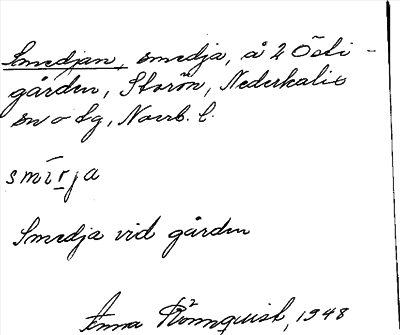 Smedjan, smedja, å 2 Östi-
gården, Storön, Nederkalix
sn o lg, Norrb. l.
smīrja
Smedja vid gården
Anna Rönnquist, 1948